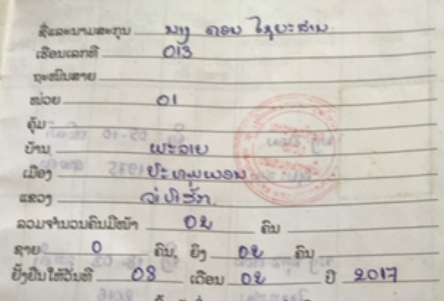 ຊື່ແລະນາມສະກຸນ ນາງ ດອນ ໄຊຍະສານ
ເຮືອນເລກທີ 013
ຖະໜົນສາຍ
ໜ່ວຍ 01
ຄຸ້ມ
ບ້ານ ພະລາຍ
ເມືອງ ປະທຸມພອນ
ແຂວງ ຈຳປາສັກ
ລວມຈຳນວນຄົນມີໜ້າ 02 ຄົນ
ຊາຍ 0 ຄົນ, ຍິງ 02 ຄົນ
ຢັ້ງຢືນໃຫ້ວັນທີ 08 ເດືອນ 02 ປີ 2017